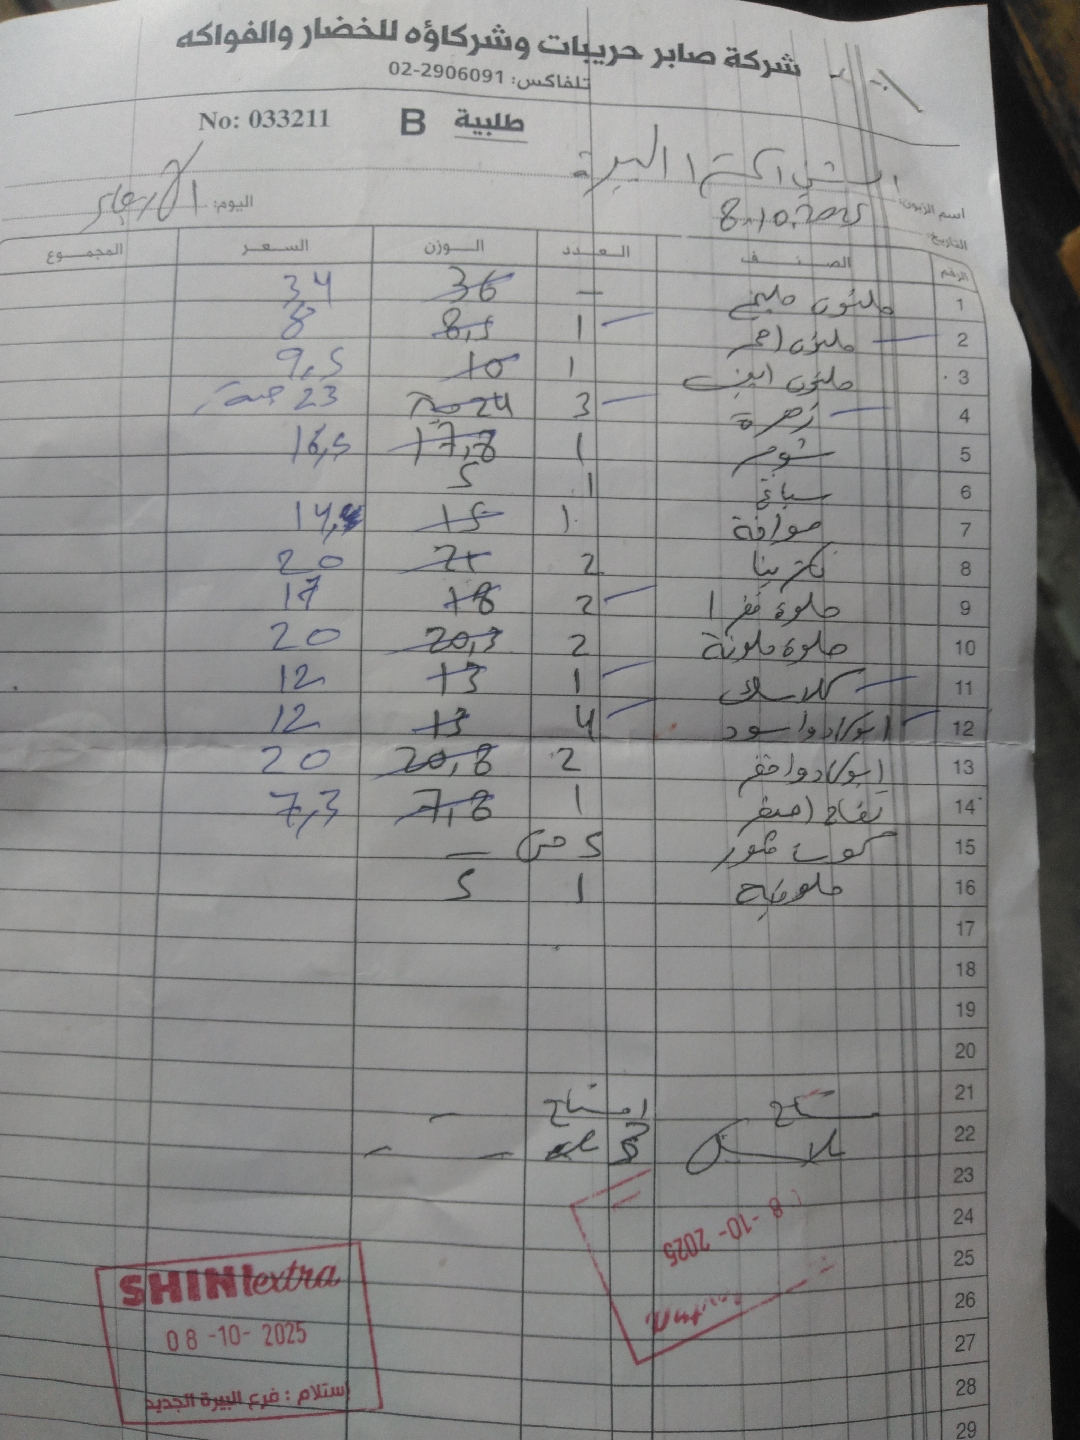 شركة صابر حريبات وشركاؤه للخضار والفواكه
تلفاكس: 02-2906091
طلبية B No: 033211
اسم الزبون: الشني اكسترا البيرة
التاريخ: 8.10.2025 اليوم: الاربعاء
الرقم الصنف العدد الوزن السعر المجموع
1 – 36 34
2 ملفوف احمر 1 8,5 8
3 ملفوف ابيض 1 10 9,5
4 زهرة 3 24 23
5 ثوم 1 17,8 16,5
6 سبانخ 1 5
7 جوافة 1 15 14,4
8 نكترينا 2 21 20
9 2 18 17
10 حلوة ملونة 2 20,3 20
11 1 13 12
12 افوكادو اسود 4 13 12
13 افوكادو اخضر 2 20,8 20
14 تفاح اصفر 1 7,8 7,3
15 5 –
16 ملوخية 1 5
17
18
19
20
21
22
23
24
25
26
27
28
29
8-10-2025
SHINIextra
08-10-2025
استلام : فرع البيرة الجديد